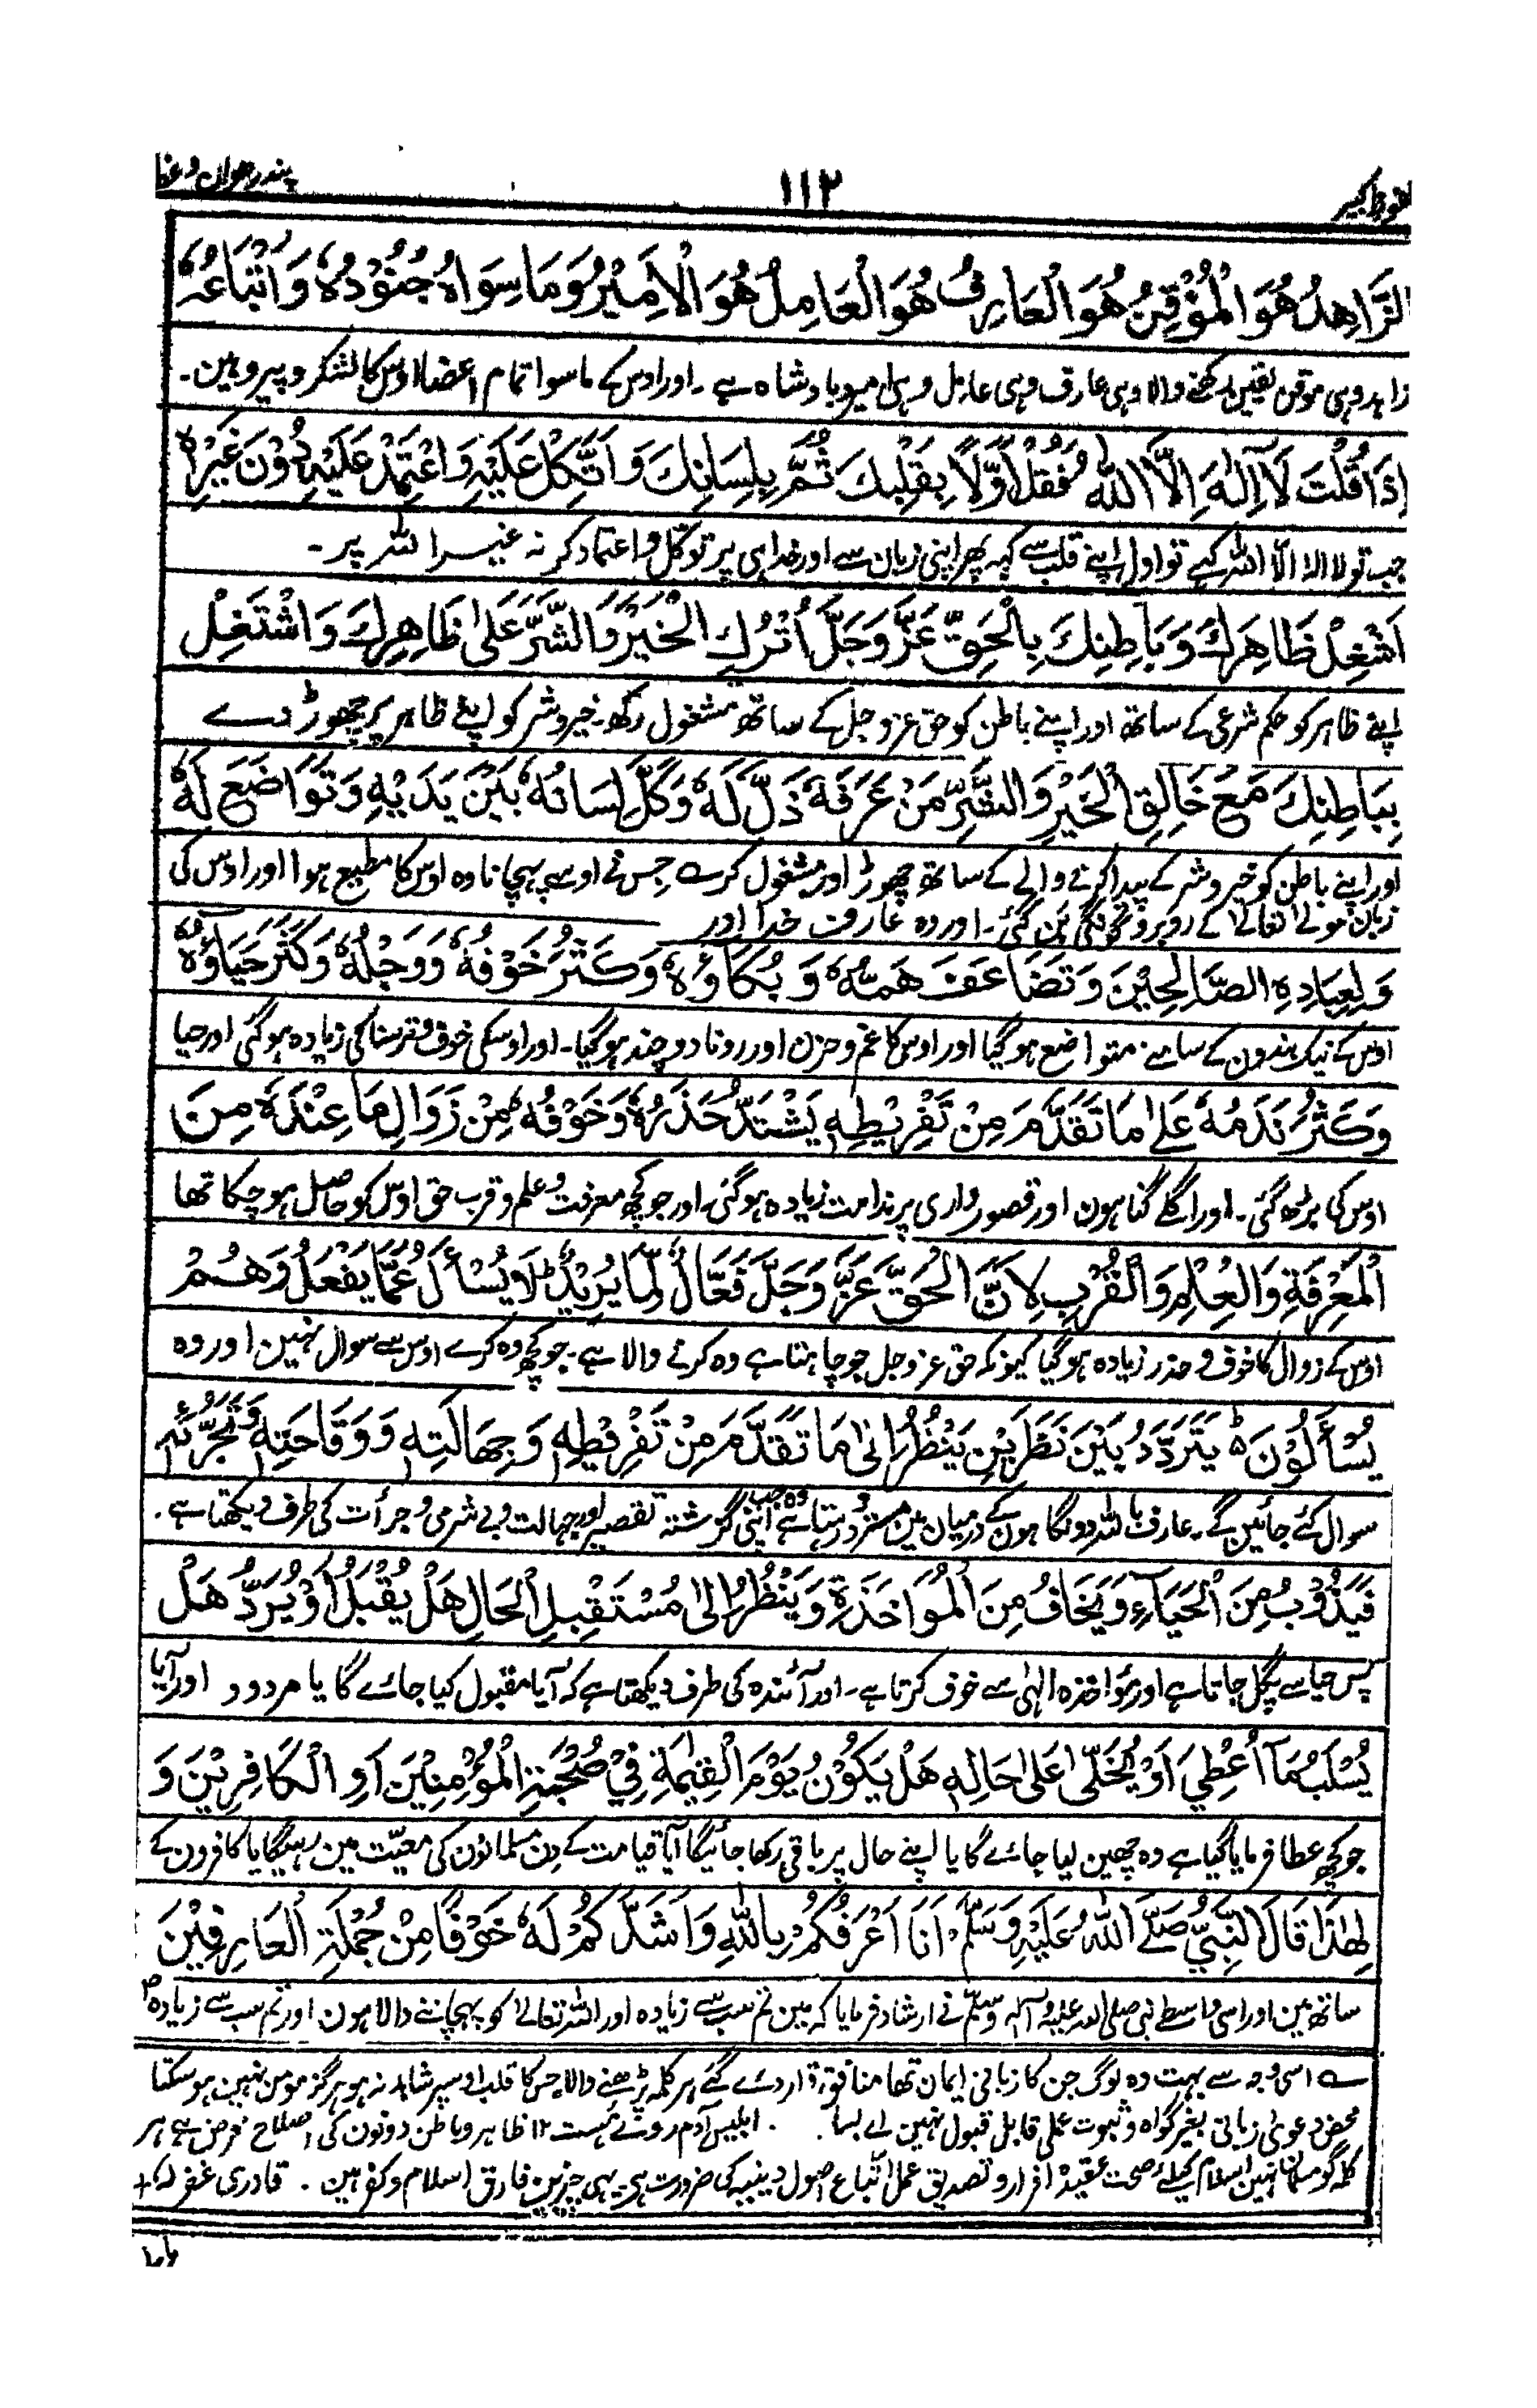 پندرھوان وعظ
۱۱۲
الزَّاهِدُ هُوَ الْمُوْقِنُ هُوَ الْعَارِفُ هُوَ الْعَامِلُ هُوَ الْاَمِيْرُ وَمَا سِوَاهُ جُنُوْدُهٗ وَاَتْبَاعُهٗ
زاہد وہی موقن یقین رکھنے والا وہی عارف وہی عامل وہی امیر و بادشاہ ہے ۔ اور اوس کے ماسوا تمام اعضا اوس کا لشکر و پیرو ہین ۔
اِذَا قُلْتَ لَا اِلٰهَ اِلَّا اللّٰهُ فَقُلْ اَوَّلًا بِقَلْبِكَ ثُمَّ بِلِسَانِكَ وَاتَّكِلْ عَلَيْهِ وَاعْتَمِدْ عَلَيْهِ دُوْنَ غَيْرِهٖ
جب تو لا الہ الا اللہ کہے تو اول اپنے قلب سے کہہ پھر اپنی زبان سے اور خدا ہی پر توکل و اعتماد کر نہ غیر اللہ پر ۔
اَشْغِلْ ظَاهِرَكَ وَبَاطِنِكَ بِالْحَقِّ عَزَّ وَجَلَّ اُتْرُكِ الْخَيْرَ وَالشَّرَّ عَلٰى ظَاهِرِكَ وَاشْتَغِلْ
اپنے ظاہر کو حکم شرعی کے ساتھ اور اپنے باطن کو حق عز و جل کے ساتھ مشغول رکھ ۔ خیر و شر کو اپنے ظاہر پر چھوڑ دے
بِبَاطِنِكَ مَعَ خَالِقِ الْخَيْرِ وَالشَّرِّ مَنْ عَرَفَهٗ ذَلَّ لَهٗ وَكَلَّ لِسَانُهٗ بَيْنَ يَدَيْهِ وَتَوَاضَعَ لَهٗ
اور اپنے باطن کو خیر و شر کے پیدا کرنے والے کے ساتھ چھوڑ اور مشغول کر ے جس نے اوسے پہچانا وہ اوس کا مطیع ہوا اور اوس کی
زبان مولے تعالے کے روبرو گونگی بن گئی ۔ اور وہ عارف خدا اور
وَلِعِبَادِهِ الصَّالِحِيْنَ وَتَضَاعَفَ هَمُّهٗ وَبُكَاؤُهٗ وَكَثُرَ خَوْفُهٗ وَوَجْلُهٗ وَكَثُرَ حَيَاؤُهٗ
اوس کے نیک بندون کے سامنے متواضع ہو گیا اور اوس کا غم و حزن اور رونا دو چند ہو گیا ۔ اور اوسکی خوف و ترسناکی زیادہ ہو گئی اور حیا
وَكَثُرَ نَدَمُهٗ عَلٰى مَا تَقَدَّمَ مِنْ تَفْرِيْطِهٖ يَشْتَدُّ حَذَرُهٗ وَخَوْفُهٗ مِنْ زَوَالِ مَا عِنْدَهٗ مِنَ
اوس کی بڑھ گئی ۔ اور اگلے گناہون اور قصور واری پر ندامت زیادہ ہو گئی ۔ اور جو کچھ معرفت و علم و قرب حق اوس کو حاصل ہو چکا تھا
الْمَعْرِفَةِ وَالْعِلْمِ وَالْقُرْبِ لِاَنَّ الْحَقَّ عَزَّ وَجَلَّ فَعَّالٌ لِّمَا يُرِيْدُ لَا يُسْأَلُ عَمَّا يَفْعَلُ وَهُمْ
اوس کے زوال کا خوف و حذر زیادہ ہو گیا کیونکہ حق عز و جل جو چاہتا ہے وہ کرنے والا ہے ۔ جو کچھ وہ کرے اوس سے سوال نہین اور وہ
يُسْأَلُوْنَ يَتَرَدَّدُ بَيْنَ نَظَرَيْنِ يَنْظُرُ اِلٰى مَا تَقَدَّمَ مِنْ تَفْرِيْطِهٖ وَجِهَالَتِهٖ وَوَقَاحَتِهٖ وَتَجَرُّئِهٖ
سوال کئے جائین گے ۔ عارف باللہ دو نگاہون کے درمیان مین متردد رہتا ہے وہ جب اپنی گزشتہ تقصیر اور جہالت و بے شرمی و جرأت کی طرف دیکھتا ہے ۔
فَيَذُوْبُ مِنَ الْحَيَآءِ وَيَخَافُ مِنَ الْمُوَاخَذَةِ وَيَنْظُرُ اِلٰى مُسْتَقْبِلِ الْحَالِ هَلْ يُقْبَلُ اَوْ يُرَدُّ هَلْ
پس حیا سے پگھل جاتا ہے اور مؤاخذہ الہٰی سے خوف کرتا ہے ۔ اور آئندہ کی طرف دیکھتا ہے کہ آیا مقبول کیا جائے گا یا مردود اور آیا
يُسْلَبُ مَا اُعْطِيَ اَوْ يُخَلّٰى عَلٰى حَالِهٖ هَلْ يَكُوْنُ يَوْمَ الْقِيٰمَةِ فِيْ صُحْبَةِ الْمُؤْمِنِيْنَ اَوِ الْكَافِرِيْنَ وَ
جو کچھ عطا فرمایا گیا ہے وہ چھین لیا جائے گا یا اپنے حال پر باقی رکھا جائیگا آیا قیامت کے دن مسلمانون کی معیّت مین رہیگا یا کافرون کے
لِهٰذَا قَالَ النَّبِيُّ صَلَّى اللّٰهُ عَلَيْهِ وَسَلَّمَ اَنَا اَعْرَفُكُمْ بِاللّٰهِ وَاَشَدُّكُمْ لَهٗ خَوْفًا مِنْ جُمْلَةِ الْعَارِفِيْنَ
ساتھ مین اور اسی واسطے نبی صلی اللہ علیہ و آلہ و سلم نے ارشاد فرمایا کہ مین تم سب سے زیادہ اور اللہ تعالے کو پہچاننے والا ہون اور تم سب سے زیادہ
اسی وجہ سے بہت وہ لوگ جن کا زبانی ایمان تھا منافق قرار دئے گئے ہر کلمہ پڑھنے والا جس کا قلب اوسپر شاہد نہ ہو ہرگز مومن نہین ہو سکتا
محض دعوی زبانی بغیر گواہ و ثبوت عملی قابل قبول نہین اے بسا ابلیس آدم روئے ہست ۱۲ ظاہر و باطن دونون کی اصلاح فرض ہے ہر
کلمہ گو مسلمان نہین اسلام کیلئے صحت عقیدہ اقرار و تصدیق عمل اتباع اصول دینیہ کی ضرورت ہے یہی چیزین فارق اسلام و کفر ہین ۔ قادری غفر لہ